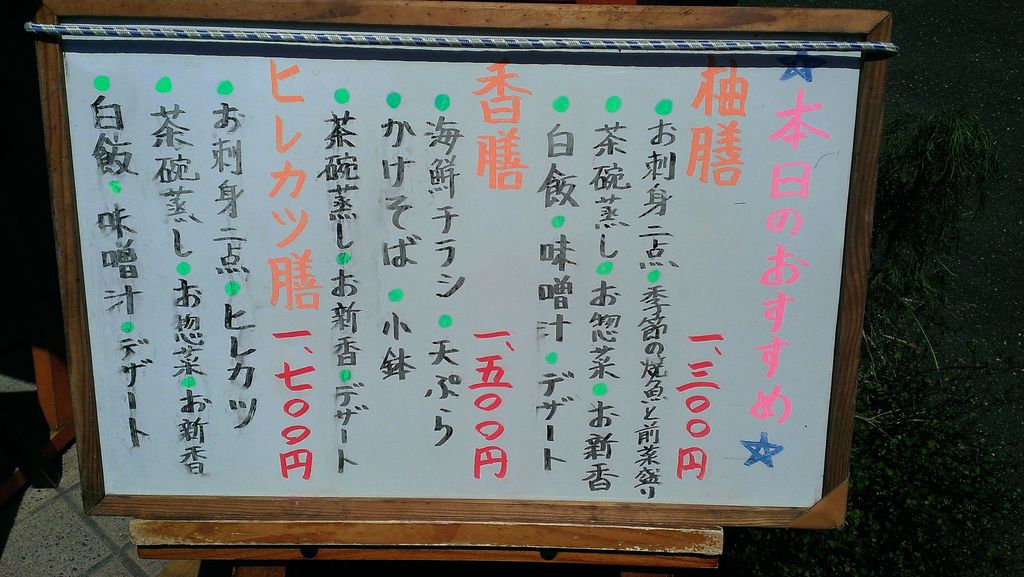 ★本日のおすすめ★
柚膳 一、三〇〇円
●お刺身二点●季節の焼魚と前菜盛り
●茶碗蒸し●お惣菜●お新香
●白飯●味噌汁●デザート
香膳 一、五〇〇円
●海鮮チラシ●天ぷら
●かけそば●小鉢
●茶碗蒸し●お新香●デザート
ヒレカツ膳 一、七〇〇円
●お刺身二点●ヒレカツ
●茶碗蒸し●お惣菜●お新香
●白飯●味噌汁●デザート